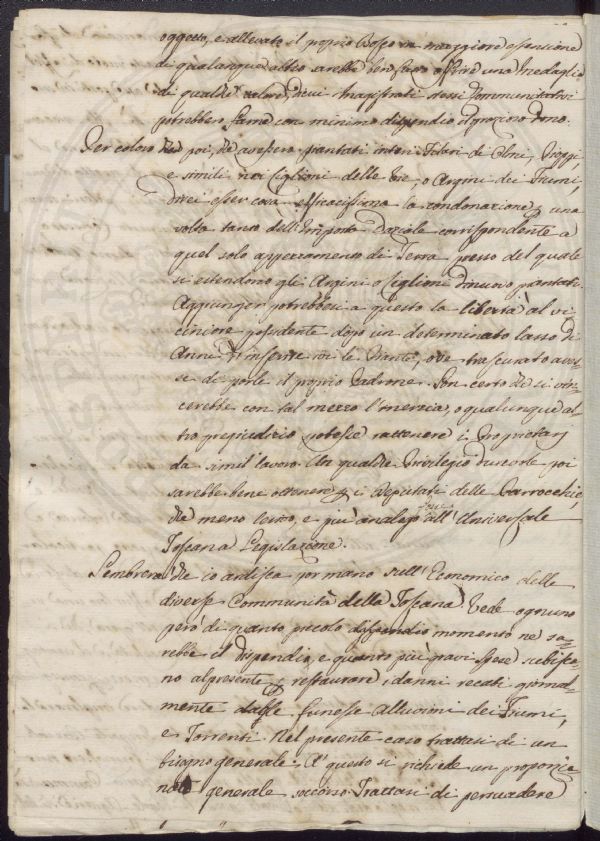 oggetto, e allevato il proprio Bosco in maggiore estensione
di qualunque altro sarebbe ben fatto offrire una Medaglia
di qualche valore, di cui i Magistrati stessi Communitativi
potrebbero farne con minimo dispendio il grazioso dono.
Per coloro che poi, che avessero piantati interi Filari di Olmi, Pioppi
e simili nei Ciglioni delle Vie, o Argini dei Fiumi,
direi esser cosa efficacissima la condonazione p. una
volta tanto dell'Imposta Daziale corrispondente a
quel solo appezzamento di Terra presso del quale
si estendono gli Argini o Ciglioni di nuovo piantati.
Aggiunger potrebbesi a questo la libertà al vi=
ciniore possidente dopo un determinato lasso di
Anni d'inserire con le Piante, ove trascurato aves=
se di porle il proprio Padrone. Son certo che si vin=
cerebbe con tal mezzo l'inerzia, o qualunque al=
tro pregiudizio potesse rattenere i Proprietarj
da simil lavoro. Un qualche Privilegio durevole poi
sarebbe bene ottenere p. i Deputati delle Parrocchie,
che meno leso, e più analogo all'Universale
Toscana Legislazione.
Sembrerà che io ardisca por mano sull'Economico delle
diverse Communità della Toscana. Vede ognuno
però di quanto piccolo momento ne sa=
rebbe il dispendio, e quanto più gravi spese subisca=
no al presente p. restaurare i danni recati giornal=
mente dalle funeste alluvioni dei Fiumi,
e Torrenti. Nel presente caso trattasi di un
bisogno generale. A questo si richiede un proporzio=
nato generale soccorso. Trattasi di persuadere